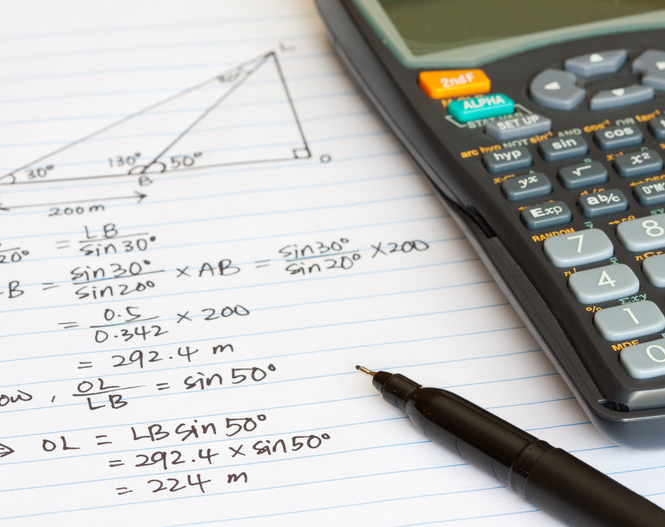 L
30°
130°
50°
B
O
200m
= LB/sin30°
B = sin30°/sin20° × AB = sin30°/sin20° × 200
= 0.5/0.342 × 200
= 292.4 m
ow, OL/LB = sin50°
⇒ OL = LB sin50°
= 292.4 × sin50°
= 224 m
2ndF
ALPHA
SET UP
hyp
sin
cos
yx
√
x²
Exp
ab/c
RANDOM
7
8
4
1
0